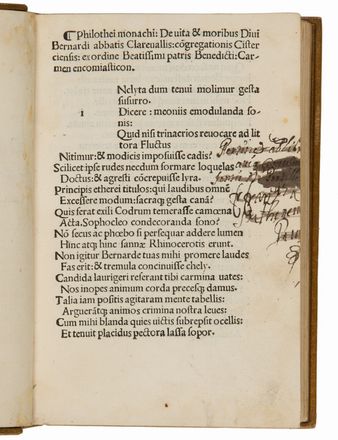 ¶Philothei monachi: De uita & moribus Diui
Bernardi abbatis Clareuallis: cōgregationis Cister
ciensis: ex ordine Beatissimi patris Benedicti: Car-
men encomiasticon.
Nclyta dum tenui molimur gesta
susurro.
i Dicere: meoniis emodulanda so-
nis:
Quid nisi trinacrios reuocare ad lit
tora Fluctus
Nitimur: & modicis imposuisse cadis?
Scilicet ipse rudes necdum formare loquelas
Doctus: & agresti cōcrepuisse lyra.
Principis etherei titulos: qui laudibus omnē
Excessere modum: sacraqȝ gesta canā?
Quis ferat exili Codrum temerasse camœna
Acta. Sophocleo condecoranda sono?
Nō secus ac phœbo si persequar addere lumen
Hinc atqȝ hinc sannæ Rhinocerotis erunt.
Non igitur Bernarde tuas mihi promere laudes
Fas erit: & tremula concinuisse chely.
Candida laurigeri referant tibi carmina uates:
Nos inopes animum corda precesqȝ damus.
Talia iam positis agitaram mente tabellis:
Arguerātqȝ animos crimina nostra leues:
Cum mihi blanda quies uictis subrepsit ocellis:
Et tenuit placidus pectora lassa sopor.